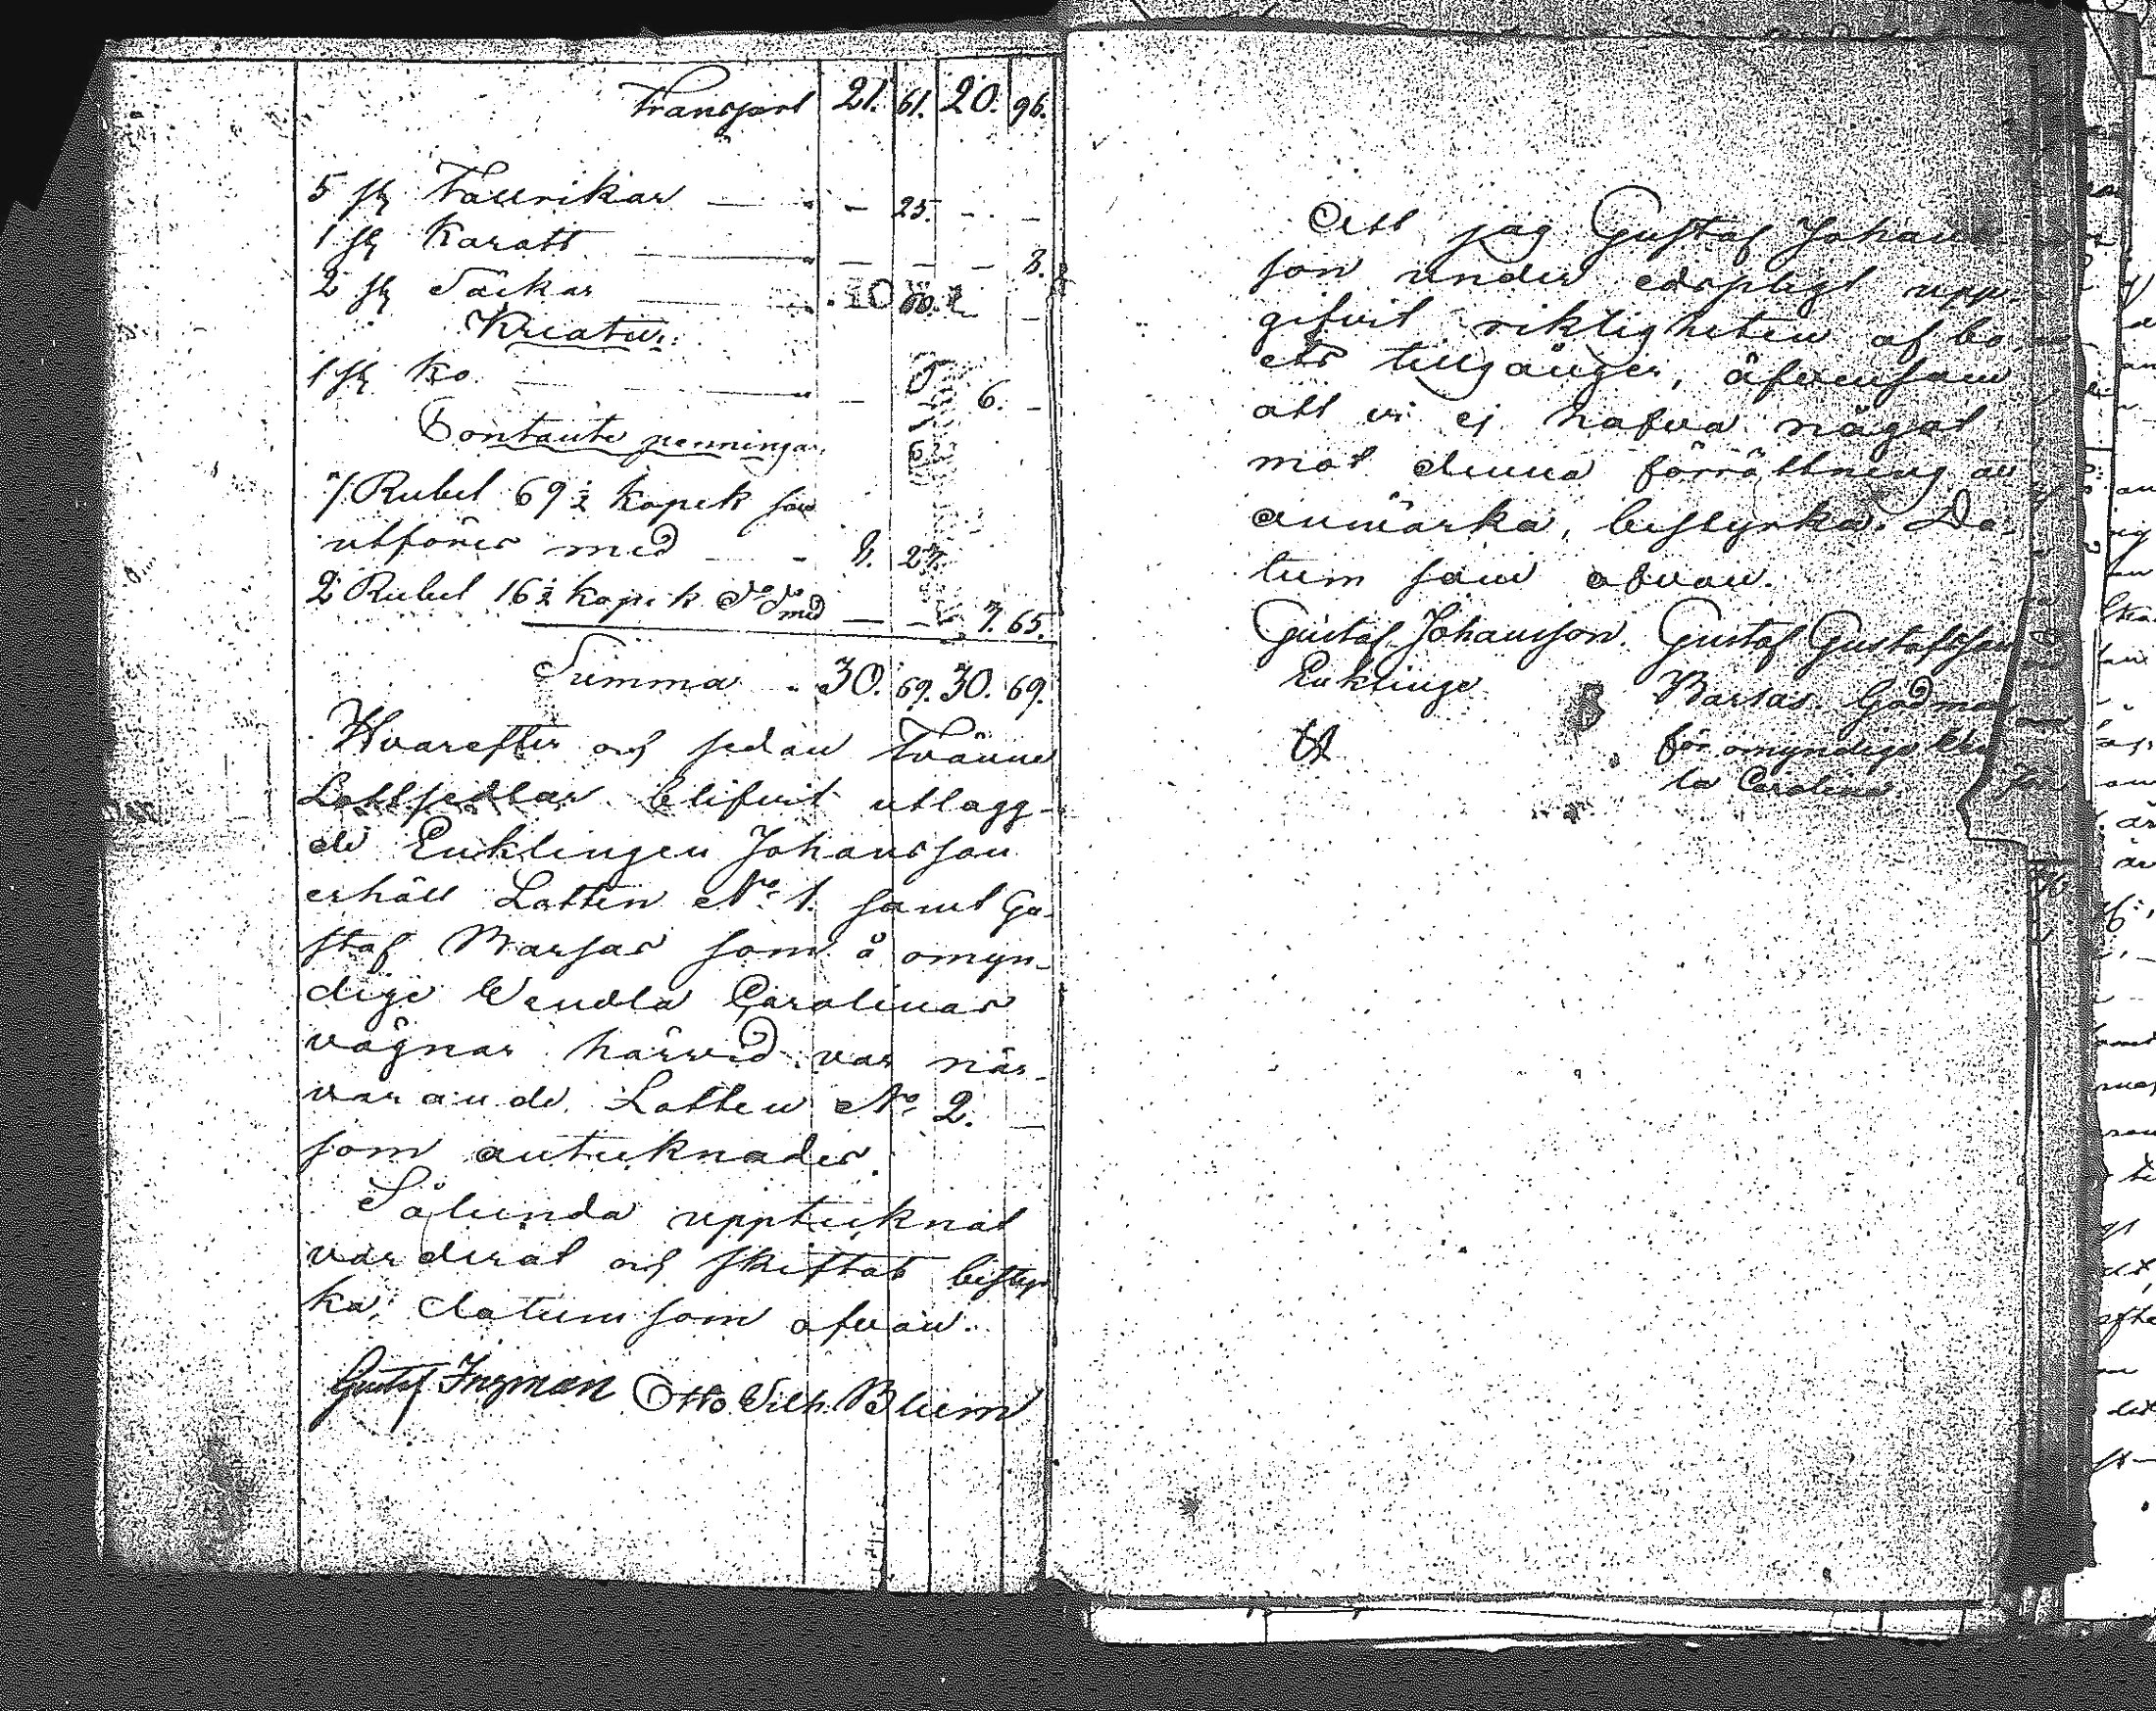 Transport 21. 61. 20. 96.
5 st Tallrikar — — 25. - -
1 st Karott — — — 8.
2 st Säckar 60. -
Kreatur.
1 st Ko — — 6. -
Contanta penningar.
Rubel 69½ kopek som
utföres med - 27.
2 Rubel 16½ kopek do do med — — 7. 65.
Summa 30. 69. 30. 69.
Hvarefter och sedan Tvänne
Lottsedlar blifvit utlagg-
de Enklingen Johansson
erhåll Lotten No 1. samt Gu-
staf Marsas som å omyn-
dige Wendla Carolinas
vägnar härvid var när-
varande, Lotten No 2.
som antecknades.
Sålunda upptecknat
värderat och skiftat bestyr
ka, datum som ofvan.
Gustaf Ingman Otto Vilh. Blum
Att jag Gustaf Johans
son under edspligt upp-
gifvit riktigheten af bo
ets tillgånger, äfvensom
att vi ej hafva något
mot denna förrättning att
anmärka, bestyrka. Da-
tum som ofvan.
Gustaf Johansson. Gustaf Gustafsson
Enklinge Marsas. Godman
för omyndige
la Carolina